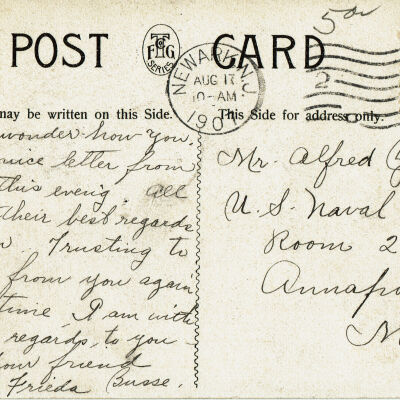 POST CARD
T F G Co
SERIES
NEWARK, N.J.
AUG 17
10-AM
1907
2
50¢
may be written on this Side.
This Side for address only.
wonder how you
nice letter from
this eveng. all
their best regards
Trusting to
from you again
time I am with
regards, to you
your friend
Frieda Busse.
Mr. Alfred
U. S. Naval
Room 2
Annapo